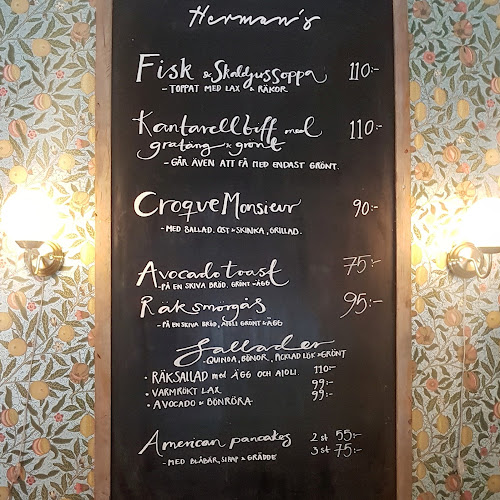 Herman's
Fisk & Skaldjussoppa 110:-
- TOPPAT MED LAX & RÄKOR.
Kantarellbiff med
gratäng & grönt 110:-
- GÅR ÄVEN ATT FÅ MED ENDAST GRÖNT.
Croque Monsieur 90:-
- MED SALLAD. OST & SKINKA, GRILLAD.
Avocado toast 75:-
- PÅ EN SKIVA BRÖD. GRÖNT & ÄGG
Räksmörgås 95:-
- PÅ EN SKIVA BRÖD, GRÖNT & ÄGG
Sallader
- QUINOA, BÖNOR, PICKLAD LÖK & GRÖNT
• RÄKSALLAD med ÄGG OCH AIOLI. 110:-
• VARMRÖKT LAX 99:-
• AVOCADO & BÖNRÖRA. 99:-
American pancakes 2 st 55:-
- MED BLÅBÄR, SIRAP & GRÄDDE 3 st 75:-